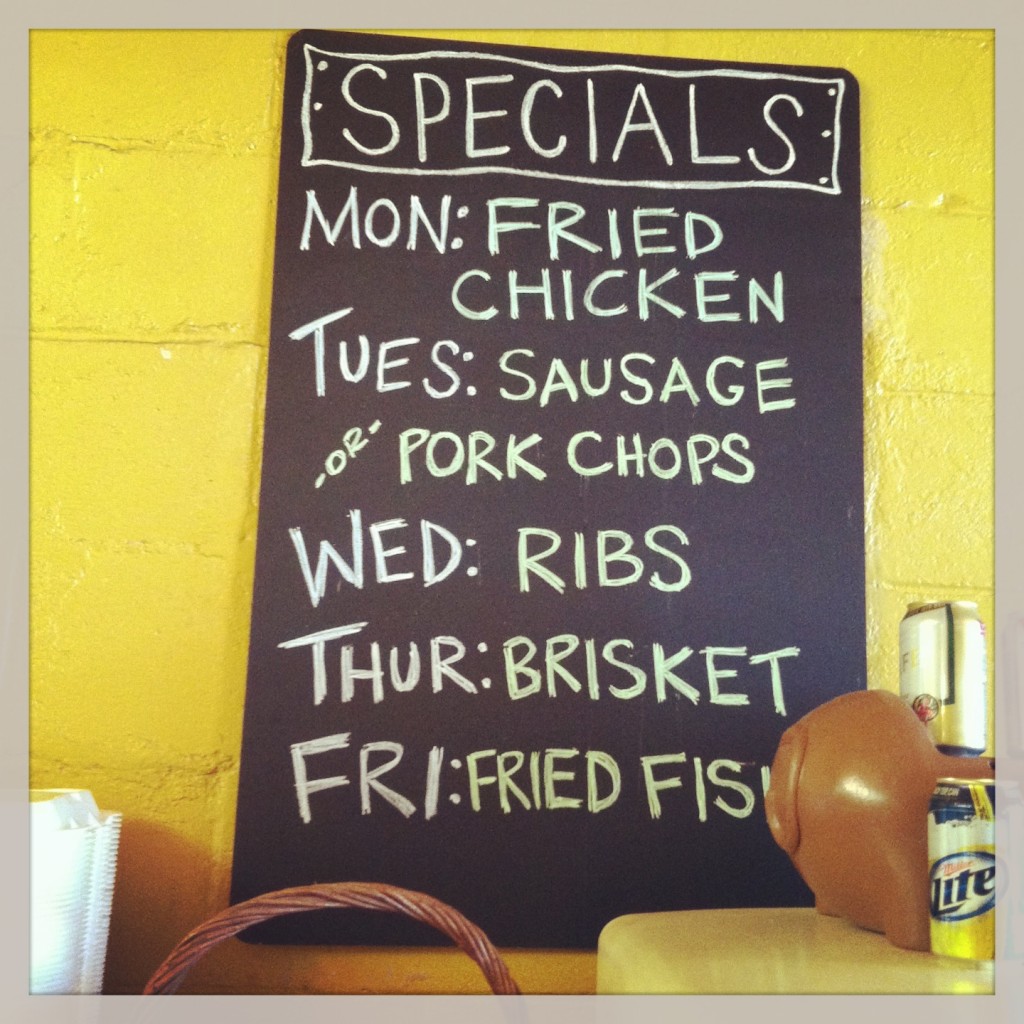 SPECIALS
MON: FRIED
CHICKEN
TUES: SAUSAGE
-OR- PORK CHOPS
WED: RIBS
THUR: BRISKET
FRI: FRIED FIS
Miller
Lite